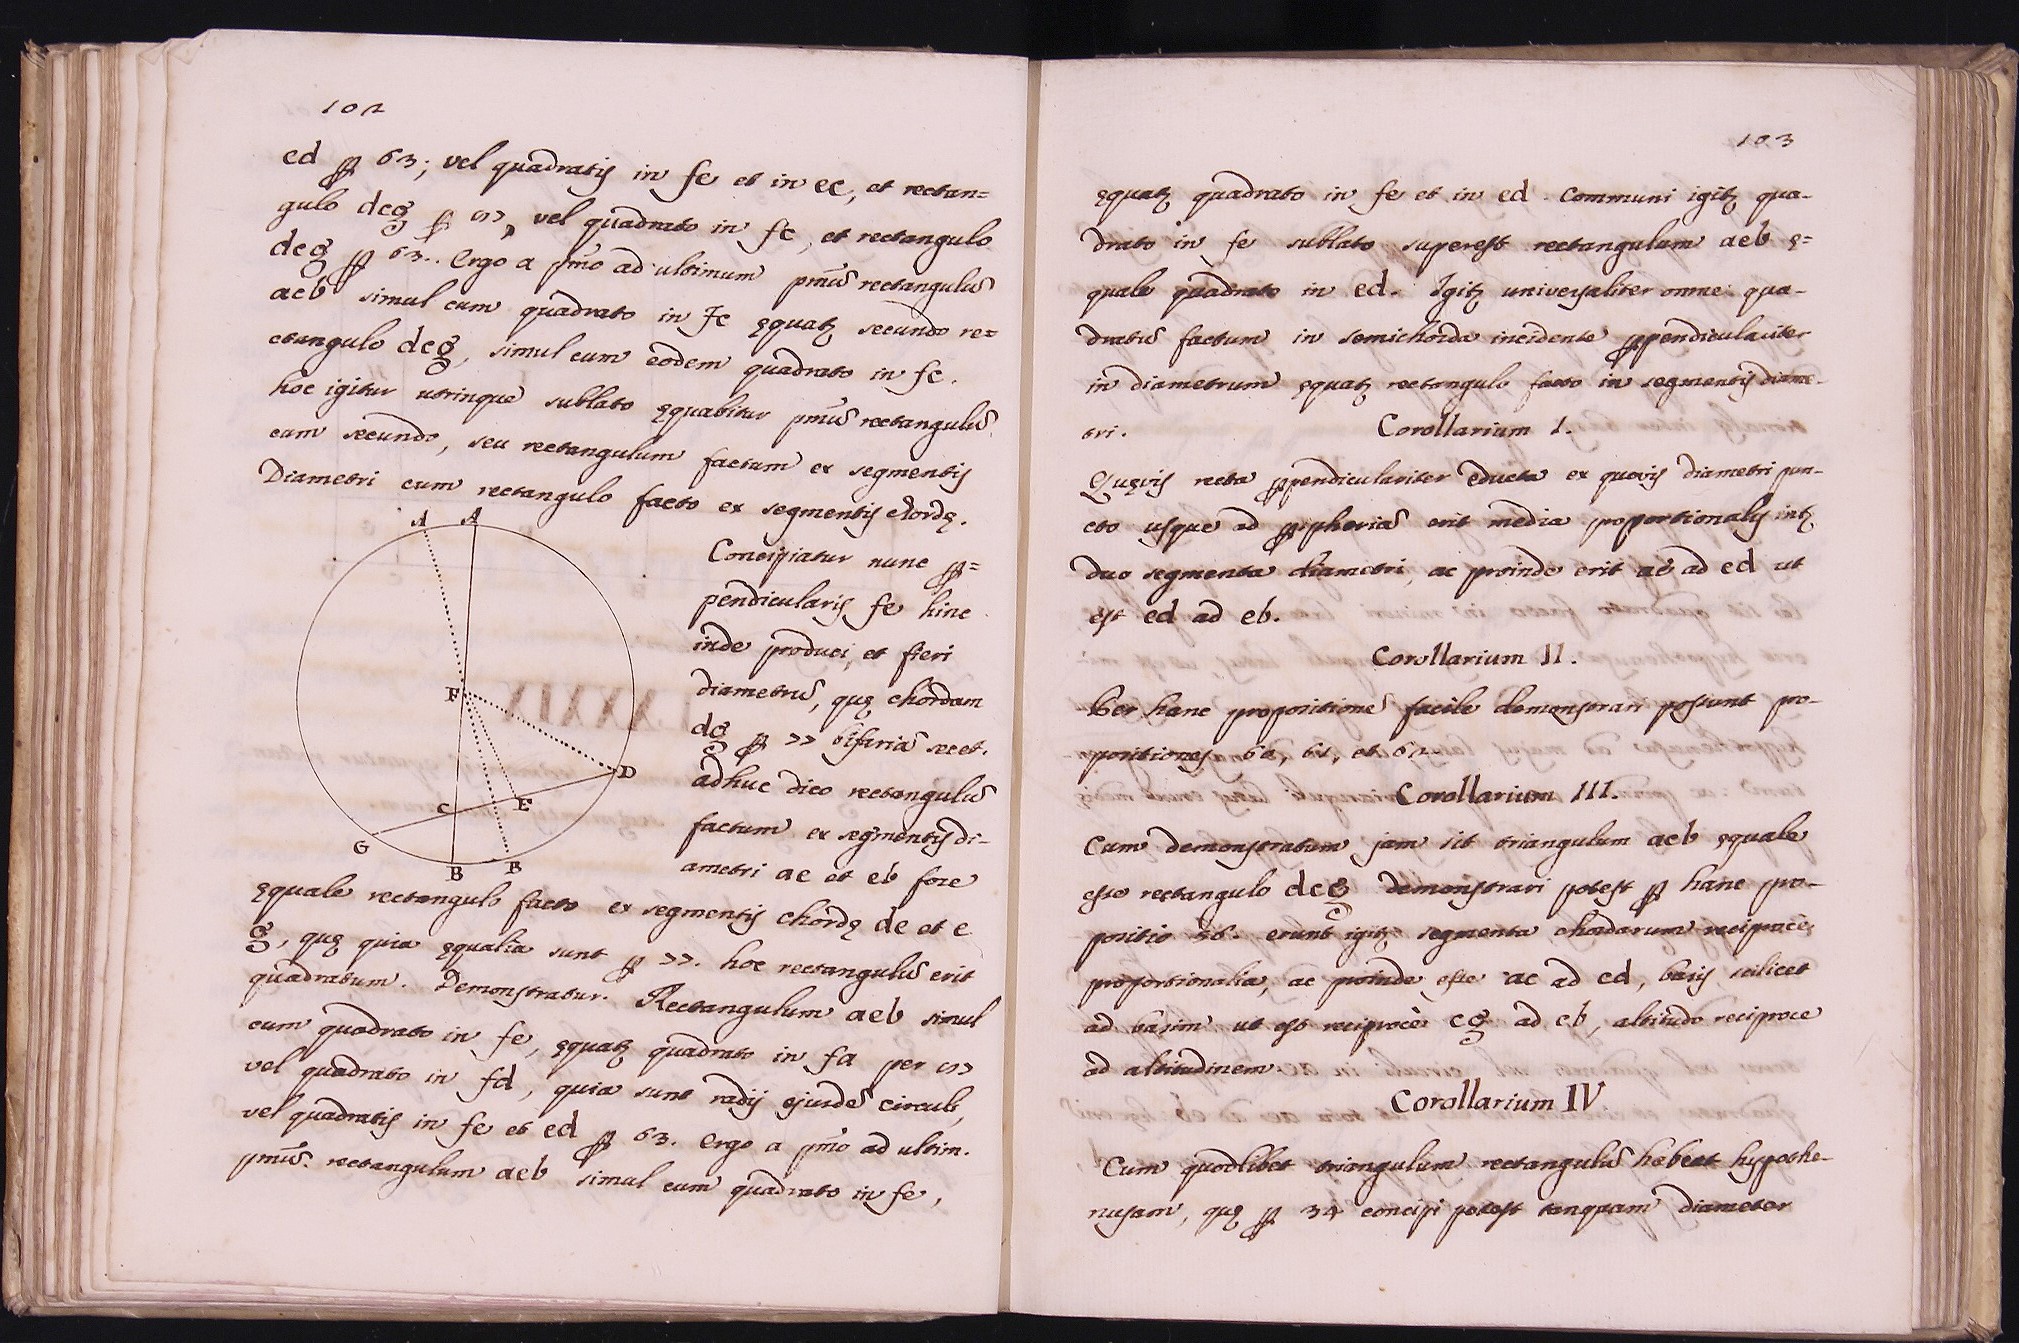 102
ed ꝑ 63; vel quadratis in fe et in ec, et rectan=
gulo dcg ꝑ 57, vel quadrato in fc, et rectangulo
dcg ꝑ 63.. Ergo a pm̃o ad ultimum pmũ rectangulũ
acb simul cum quadrato in Fc ęquatʒ secundo re=
ctangulo dcg, simul cum eodem quadrato in fc.
hoc igitur utrinque sublato ęquabitur pmũ rectangulũ
cum secundo, seu rectangulum factum ex segmentis
Diametri cum rectangulo facto ex segmentis chordę.
A A
F
D
C E
G
B B
Concipiatur nunc ꝑ=
pendicularis fe hinc
inde produci, et fieri
diametrũ, quę chordam
dg ꝑ 77 bifariã secet.
adhuc dico rectangulũ
factum ex segmentis di-
ametri ae et eb fore
ęquale rectangulo facto ex segmentis chordę de et e
g, quę quia ęqualia sunt ꝑ 77. hoc rectangulũ erit
quadratum. Demonstratur. Rectangulum aeb simul
cum quadrato in fe, ęquatʒ quadrato in fa per 57
vel quadrato in fd, quia sunt radij ejusdẽ circuli,
vel quadratis in fe et ed ꝑ 63. Ergo a pm̃o ad ultim.
pmũ. rectangulum aeb simul cum quadrato in fe,
103
ęquatʒ quadrato in fe et in ed. Communi igitʒ qua-
drato in fe sublato superest rectangulum aeb ę=
quale quadrato in ed. Igitʒ universaliter omne qua-
dratũ factum in semichorda incidente ꝑpendiculariter
in diametrum ęquatʒ rectangulo facto in segmentis diame-
tri.
Corollarium I.
Quęvis recta ꝑpendiculariter educta ex quovis diametri pun-
cto usque ad ꝑipheriã erit media proportionalis intʒ
duo segmenta diametri, ac proinde erit ae ad ed ut
est ed ad eb.
Corollarium II.
Per hanc propositionẽ facile demonstrari possunt pro-
positiones 60, 61, et 62.
Corollarium III.
Cum demonstratum jam sit triangulum acb ęquale
esse rectangulo dcg demonstrari potest ꝑ hanc pro-
positio 56. erunt igitʒ segmenta chordarum reciprocè
proportionalia, ac proinde esse ac ad cd, basis scilicet
ad basim ut est reciprocè cg ad cb, altitudo reciproce
ad altitudinem.
Corollarium IV
Cum quodlibet triangulum rectangulũ habeat hypothe-
nusam, quę ꝑ 34 concipi potest tanquam diameter